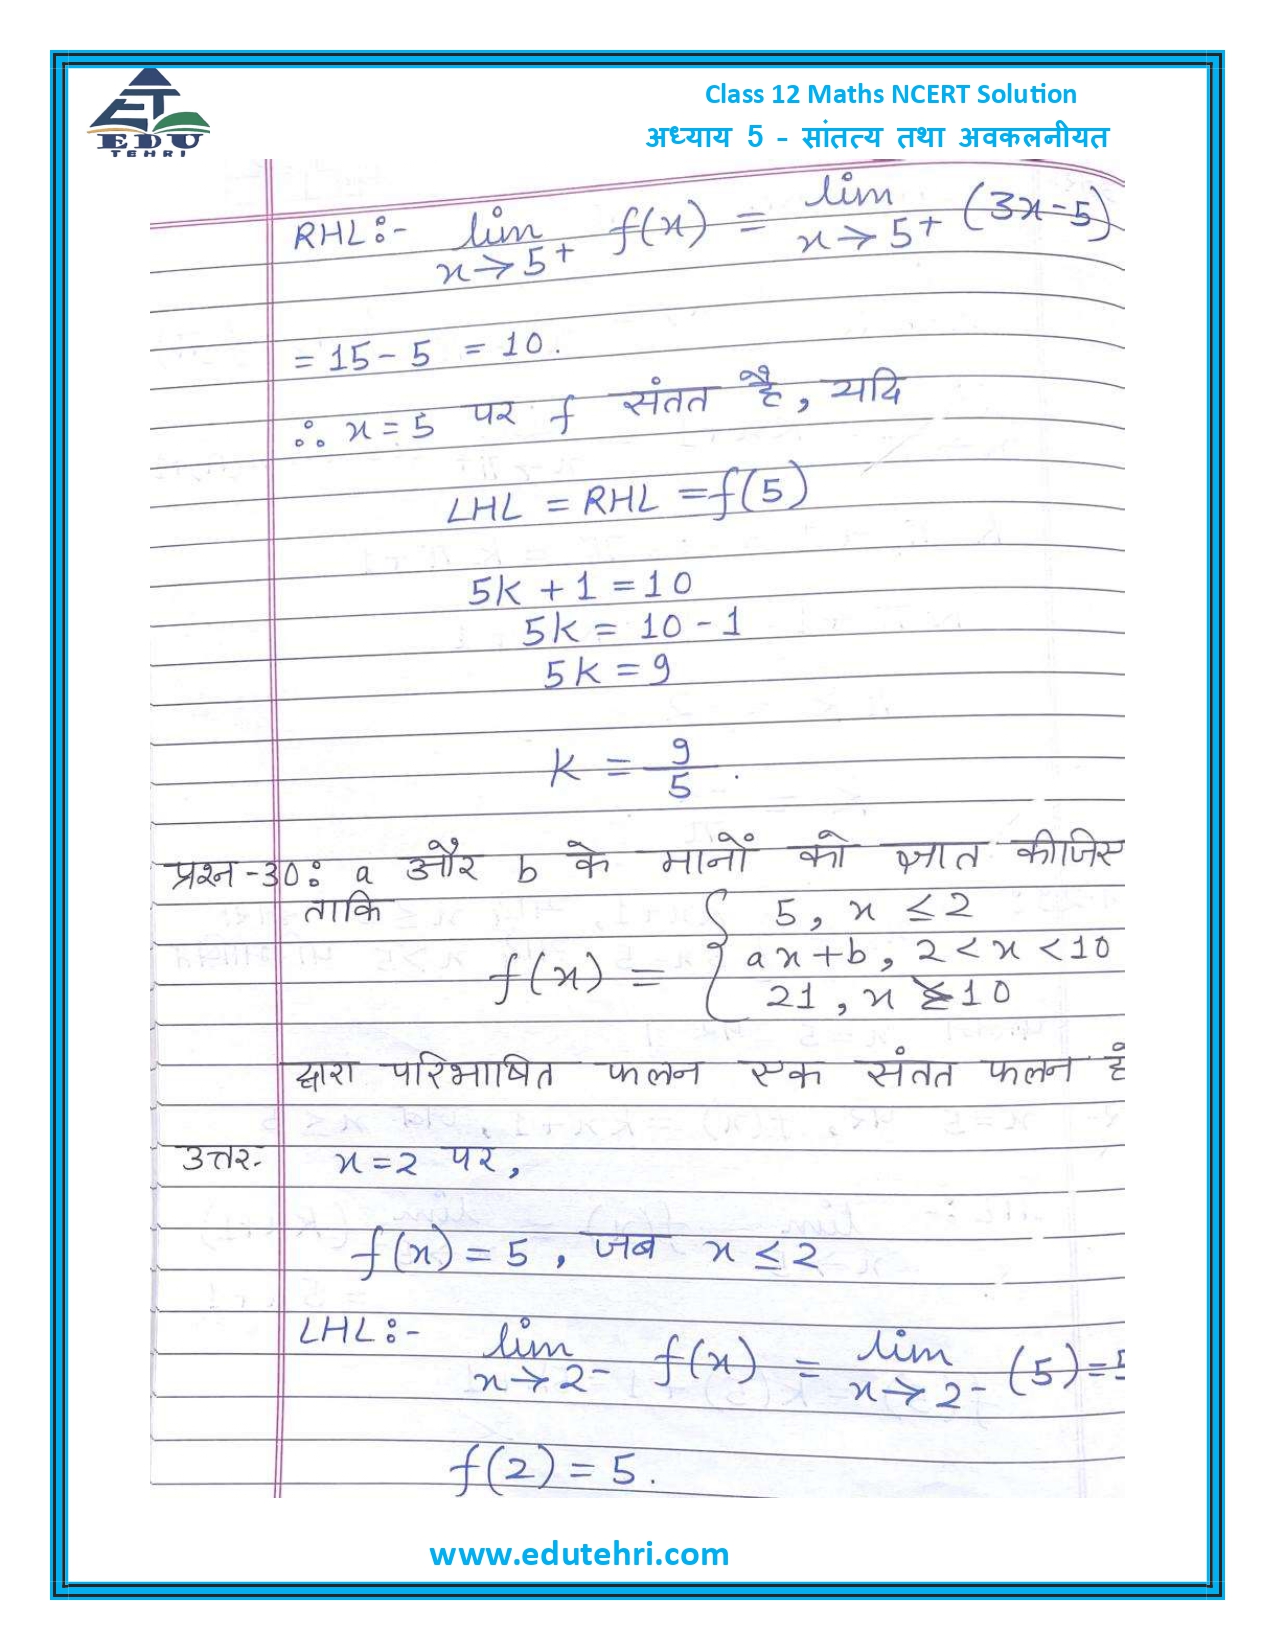 EDU
TEHRI
Class 12 Maths NCERT Solution
अध्याय 5 - सांतत्य तथा अवकलनीयत
RHL:- lim x→5+ f(x) = lim x→5+ (3x-5)
= 15-5 = 10.
∴ x=5 पर f संतत है, यदि
LHL = RHL = f(5)
5k+1=10
5k = 10-1
5k=9
k = 9/5.
प्रश्न-30: a और b के मानों को ज्ञात कीजिए
ताकि
f(x) = { 5, x ≤ 2
ax+b, 2<x<10
21, x ≥ 10
द्वारा परिभाषित फलन एक संतत फलन हो
उत्तर:- x=2 पर,
f(x)=5, जब x ≤ 2
LHL:- lim x→2- f(x) = lim x→2- (5)=5
f(2)=5.
www.edutehri.com